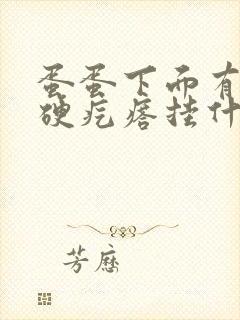 蛋蛋下面有
硬疙瘩挂什
芳歷